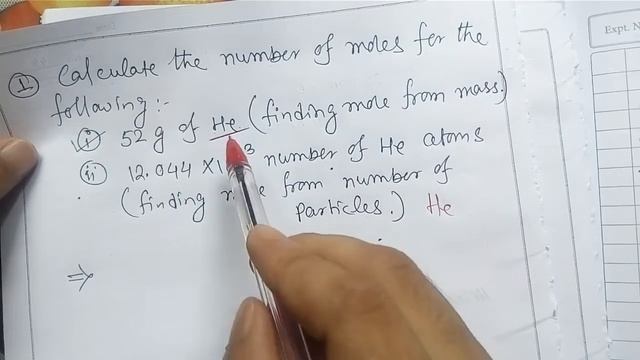 ① Calculate the number of moles for the
following :-
(i) 52 g of He (finding mole from mass.)
(ii) 12.044 × number of He atoms
(finding from number of
particles.) He
⇒
Expt. N